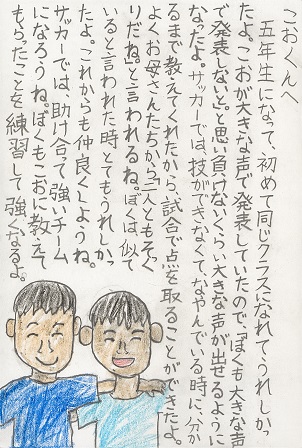 こおくんへ
五年生になって、初めて同じクラスになれてうれしかっ
たよ。こおが大きな声で発表していたので、ぼくも大きな声
で発表しないと。と思い負けないくらい大きな声が出せるように
なったよ。サッカーでは技ができなくて、なやんでいる時に、分か
るまで教えてくれたから、試合で点を取ることができたよ。
よくお母さんたちから「二人ともそっく
りだね」と言われるね。ぼくは似て
いると言われた時とてもうれしかっ
たよ。これからも仲良くしようね。
サッカーでは、助け合って強いチーム
になろうね。ぼくもこおに教えて
もらったことを練習して強くなるよ。